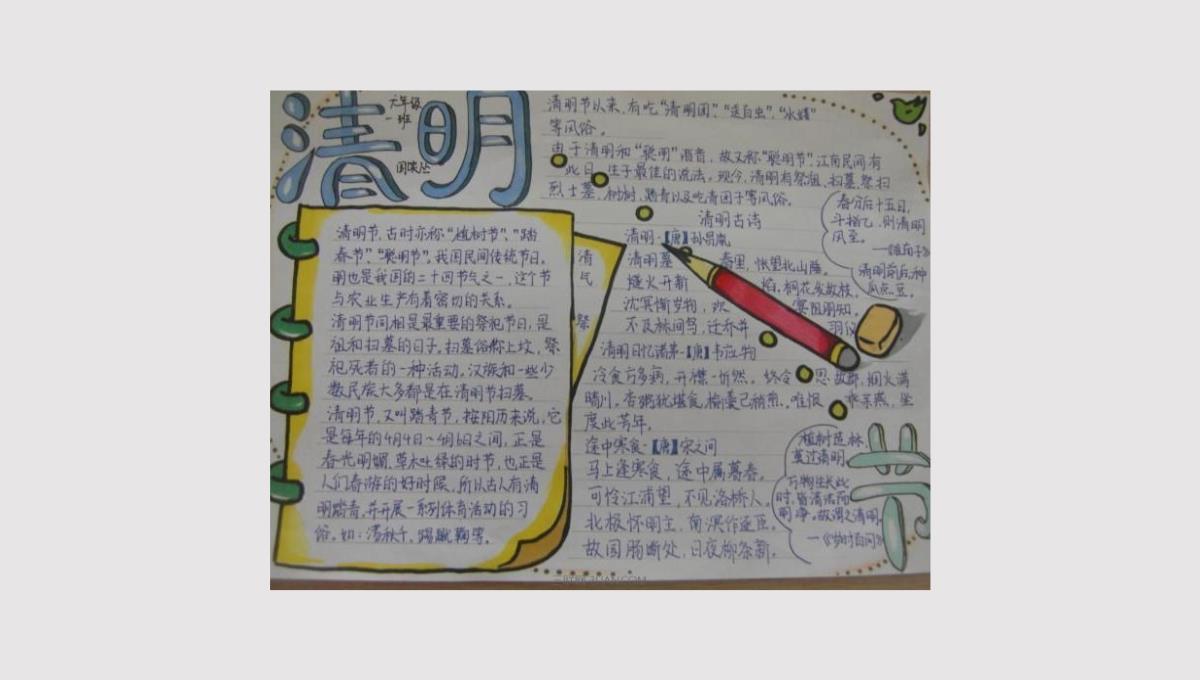 清明
六年级
一班
清明节以来,有吃“清明团”、“送白虫”、“水嬉”
等风俗。
由于清明和“聪明”谐音,故又称“聪明节”,江南民间有
此日 生子最佳的说法。现今,清明有祭祖、扫墓、祭扫
烈士墓、植树、踏青以及吃青团子等风俗。
清明节,古时亦称“植树节”、“踏
春节”、“聪明节”,我国民间传统节日。
明也是我国的二十四节气之一,这个节
与农业生产有着密切的关系。
清明节同相是最重要的祭祀节日,是
祖和扫墓的日子。扫墓俗称上坟,祭
祀死者的一种活动。汉族和一些少
数民族大多都是在清明节扫墓。
清明节,又叫踏青节,按阳历来说,它
是每年的4月4日~4月6日之间,正是
春光明媚、草木吐绿的时节,也正是
人们春游的好时候,所以古人有清
明踏青,并开展一系列体育活动的习
俗。如:荡秋千、踢蹴鞠等。
清
气
祭
清明古诗
清明-【唐】孙昌胤
清明暮 春里,怅望北山陲。
燧火开新 焰,桐花发故枝。
沈冥惭岁物,欢 宴阻朋知。
不及林间鸟,迁乔并 羽仪
清明日忆诸弟-【唐】韦应物
冷食方多病,开襟一忻然。终令 思故郡,烟火满
晴川。杏粥犹堪食,榆羹已稍煎。唯恨 乖亲燕,坐
度此芳年。
途中寒食-【唐】宋之问
马上逢寒食,途中属暮春。
可怜江浦望,不见洛桥人。
北极怀明主,南溟作逐臣。
故园肠断处,日夜柳条新。
春分后十五日,
斗指乙,则清明
风至。
—《淮南子》
清明前后,种
瓜点豆。
植树造林,
莫过清明。
万物生长此
时,皆清洁而
明净。故谓之清明。
—《岁时百问》
节